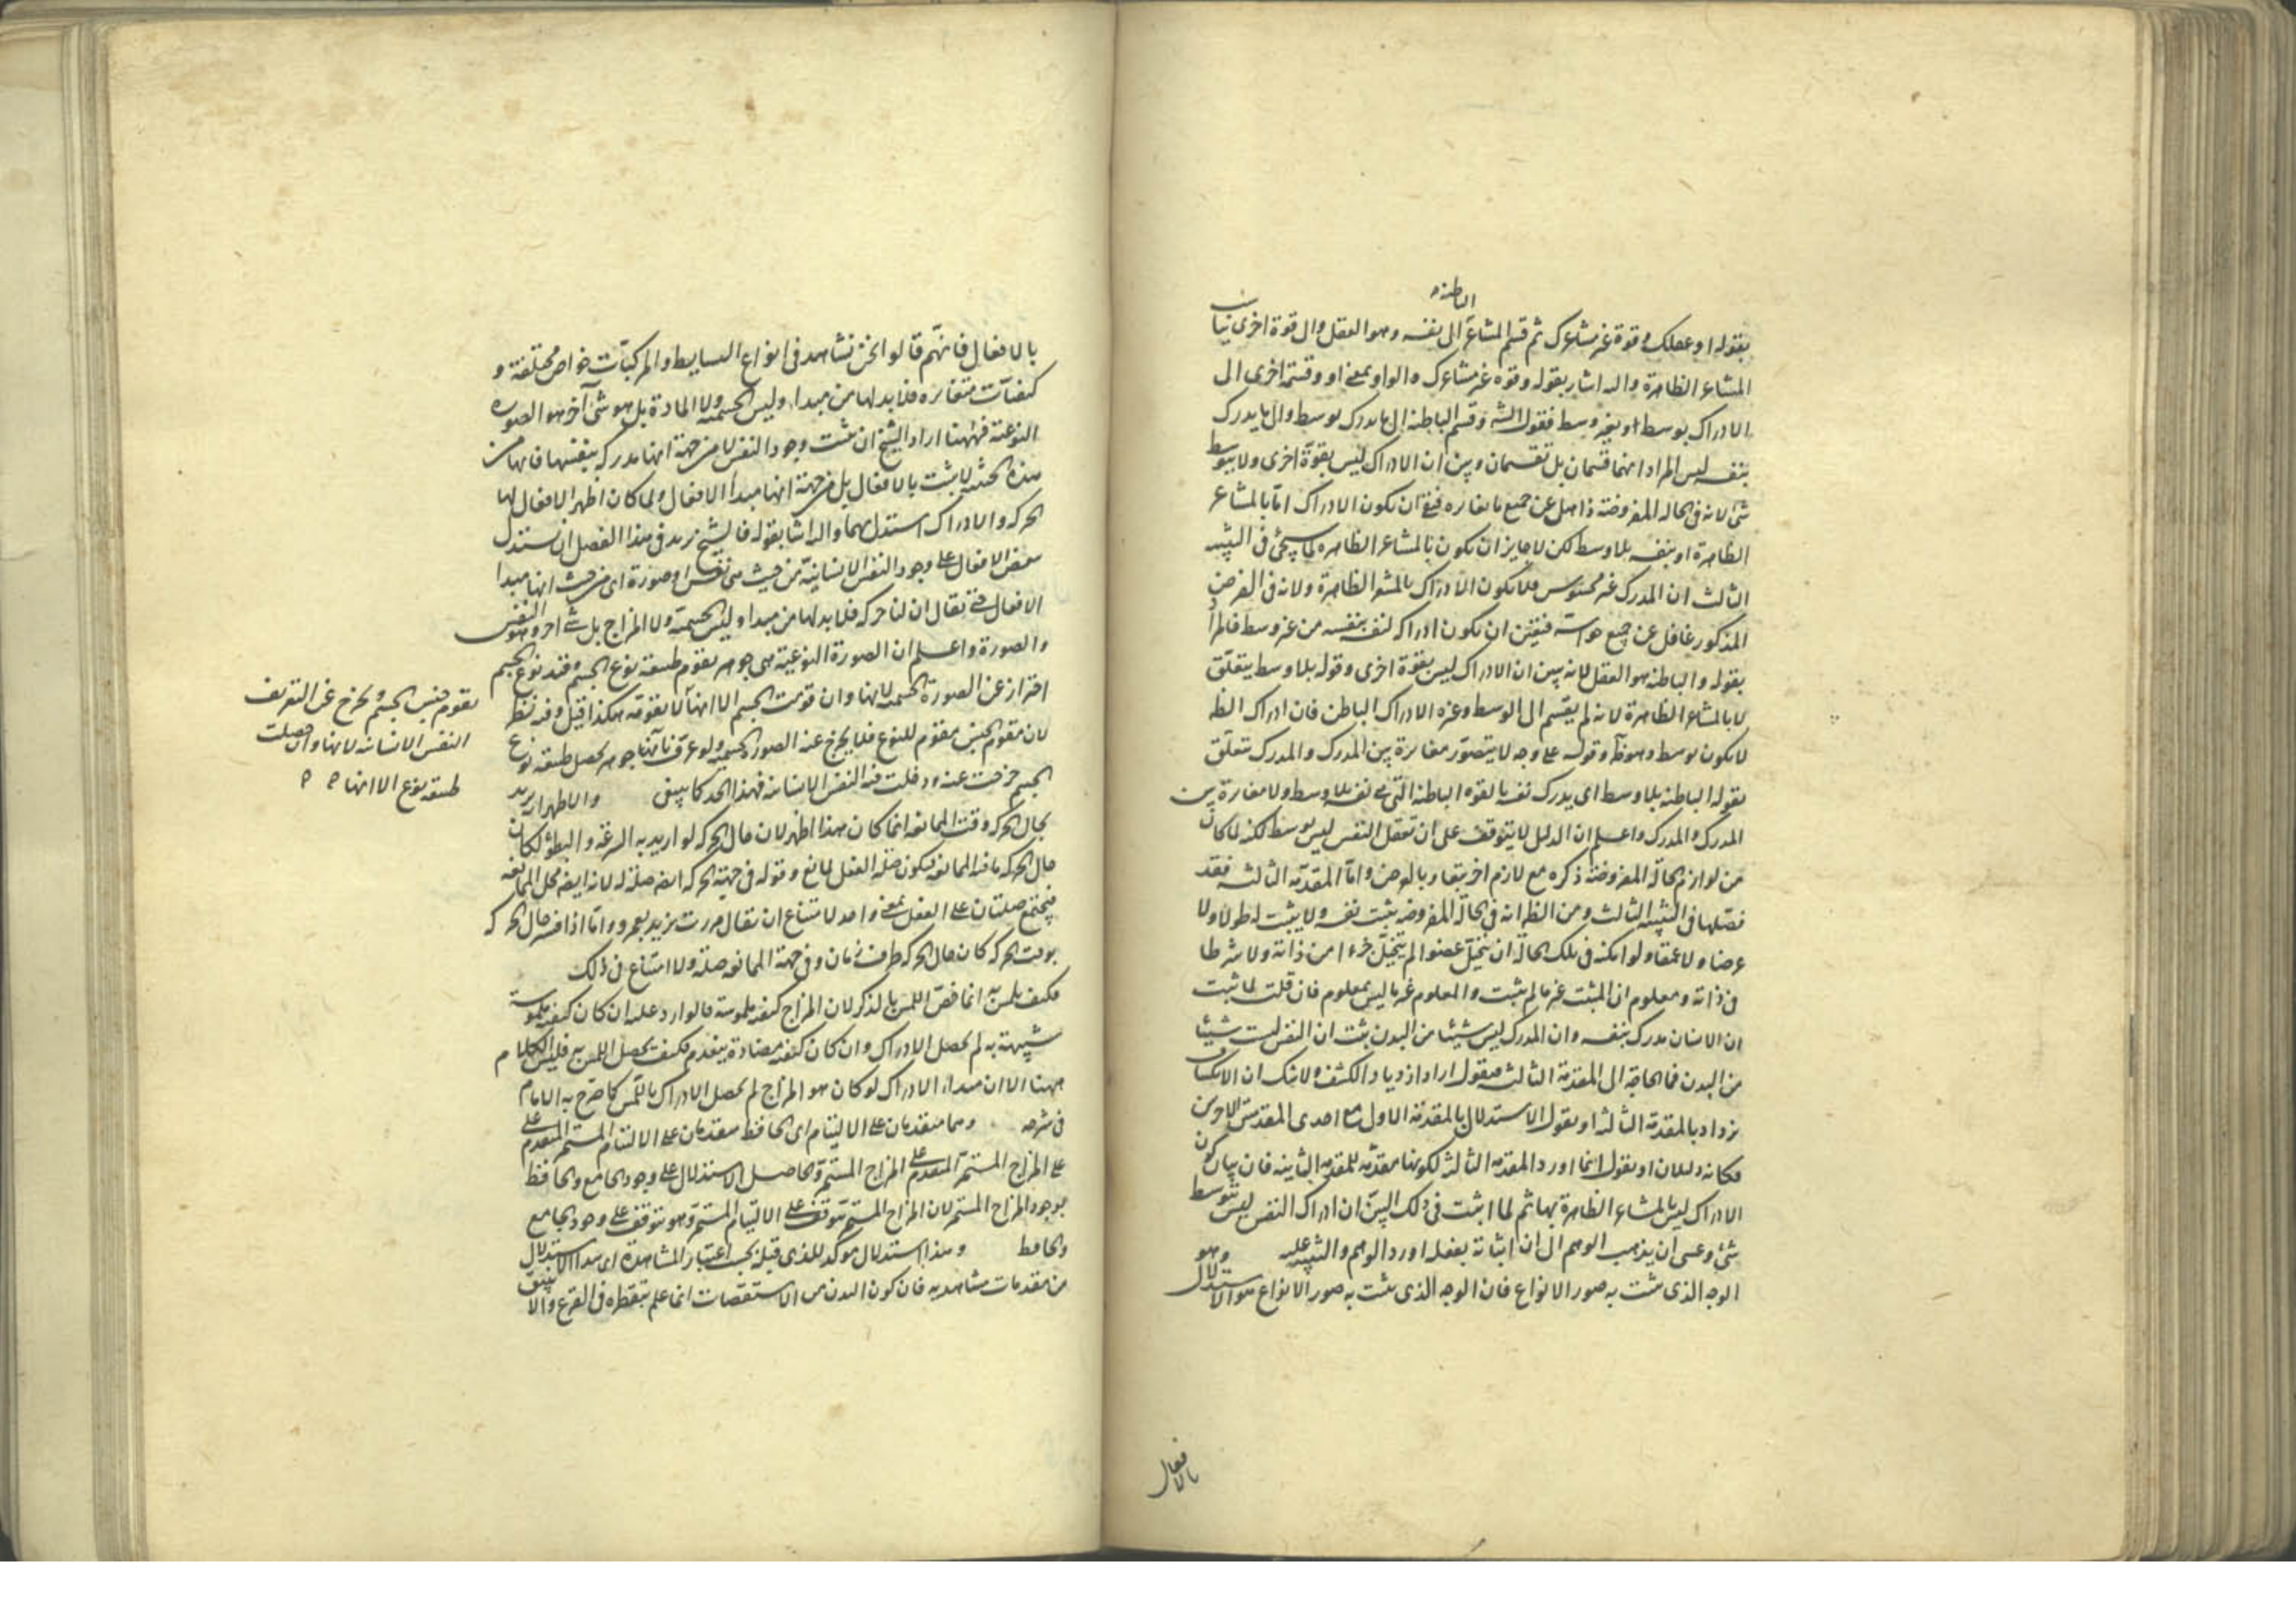 الباطنة
بقوله او عقلك وقوة غير مشاعرك ثم قسم المشاعر الى نفسه وهو العقل والى قوة اخرى
المشاعر الظاهرة واليه اشار بقوله وقوة غير مشاعرك والواو بمعنى او وقسمة اخرى الى
الادراك بوسط او بغير وسط فقول الش وقسم الباطنة الى ما يدرك بوسط والى ما يدرك
بنفسه ليس المراد انهما قسمان بل تقسمان وبين ان الادراك ليس بقوة اخرى ولا بتوسط
شئ لانه فى الحالة المفروضة ذاهل عن جميع ما يغايره فبقى ان يكون الادراك اما بالمشاعر
الظاهرة او بنفسه بلا وسط لكن لا جايز ان يكون بالمشاعر الظاهرة لما سيجئ فى التنبيه
الثالث ان المدرك غير محسوس فلا يكون الادراك بالمشاعر الظاهرة ولانه فى الفرض
المذكور غافل عن جميع حواسه فتعين ان يكون ادراكه لنفسه بنفسه من غير وسط فالمراد
بقوله والباطنة هو العقل لانه بين ان الادراك ليس بقوة اخرى وقوله بلا وسط يتعلق
لا بالمشاعر الظاهرة لانه لم يقسم الى الوسط وغيره الا دراك الباطن فان ادراك الظ
لا يكون بوسط وهو ظ وقوله على وجه لا يتصور مغايرة بين المدرك والمدرك متعلق
بقوله الباطنة بلا وسط اى يدرك نفسه بالقوة الباطنة التى هى نفسه بلا وسط ولا مغايرة بين
المدرك والمدرك واعلم ان الدليل لا يتوقف على ان تعقل النفس ليس بوسط لكنه لما كان
من لوازم الحالة المفروضة ذكره مع لازم اخر بقاء وبالعرض واما المقدمة الثالثة فقد
فصلها فى التنبيه الثالث ومن الظ انه فى الحالة المفروضة يثبت نفسه ولا يثبت له طولا ولا
عرضا ولا عمقا ولو امكنه فى تلك الحالة ان يتخيل عضوا لم يتخيل جزءا من ذاته ولا شرطا
فى ذاته ومعلوم ان المثبت غير ما لم يثبت والمعلوم غير ما ليس بمعلوم فان قلت لما ثبت
ان الانسان مدرك بنفسه وان المدرك ليس شيئا من البدن ثبت ان النفس ليست شيئا
من البدن فما الحاجة الى المقدمة الثالثة فنقول اراد ازدياد الكشف ولا شك ان الانكشاف
يزداد بالمقدمة الثالثة او نقول الاستدلال بالمقدمة الاولى مع احدى المقدمتين الاخريين
فكانه دليلان او نقول انما اورد المقدمة الثالثة لكونها مقدمة للمقدمة الثانية فان بيان كون
الادراك ليس بالمشاعر الظاهرة بها ثم لما اثبت فى ذلك التبين ان ادراك النفس ليس بتوسط
شئ وعسى ان يذهب الوهم الى ان اثباته بفعله اورد الوهم والتنبيه عليه وهو
الوجه الذى يثبت به صور الانواع فان الوجه الذى يثبت به صور الانواع هو الاستدلال
بالافعال
بالافعال فانهم قالوا نحن نشاهد فى انواع البسايط والمركبات خواص مختلفة و
كيفيات متغايرة فلا بد لها من مبدا وليس الجسمية ولا المادة بل هو شئ آخر هو الصورة
النوعية فههنا اراد الشيخ ان يثبت وجود النفس لا من جهة انها مدركة بنفسها فانها من
هذه الحيثية لا يثبت بالافعال بل من جهة انها مبدا الافعال ولما كان اظهر الافعال لها
الحركة والادراك استدل بهما واليه اشار بقوله فالشيخ يريد فى هذا الفصل ان يستدل
ببعض الافعال على وجود النفس الانسانية من حيث هى نفس او صورة اى من حيث انها مبدا
الافعال حتى يقال ان لنا حركة فلا بد لها من مبدا وليس الجسمية ولا المزاج بل شئ اخر وهو النفس
والصورة واعلم ان الصورة النوعية هى جوهر يقوم طبيعة نوع الجسم وقيد نوع الجسم
احتراز عن الصورة الجسمية لانها وان قومت الجسم الا انها لا تقومه هكذا قيل وفيه نظر
لان مقوم الجنس مقوم للنوع فلا يخرج عنه الصور الجسمية ولو عرف بانها جوهر يحصل طبيعة نوع
الجسم خرجت عنه ودخلت فيه النفس الانسانية فهذا الحد كما ينبغى والاظهر ان يريد
بحال الحركة وقت الممانعة انما كان هذا اظهر لان حال الحركة لو اريد به السرعة والبطؤ لكان
حال الحركة ما فيه الممانعة فيكون صلة الفعل لمانع وقوله فى جهة الحركة ايضا صلة له لانه ايضا محل الممانعة
فيجتمع صلتان على الفعل بمعنى واحد لامتناع ان يقال مررت بزيد بعمرو واما اذا فسر حال الحركة
بوقت الحركة كان حال الحركة ظرف زمان وفى جهة الممانعة صلة ولا امتناع فى ذلك
فكيف يلمس انما خص اللمس بالذكر لان المزاج كيفية ملموسة فالوارد عليه ان كان كيفية ملموسة
شبيهة به لم يحصل الادراك وان كان كيفية مضادة ينعدم فكيف يحصل اللمس به فليس الكلام
ههنا الا ان مبداء الادراك لو كان هو المزاج لم يحصل الادراك باللمس كما صرح به الامام
فى شرحه وهما متقدمان على الالتيام اى الحافظ متقدمان على الالتيام المستمر المتقدم على
على المزاج المستمر المتقدم على المزاج المستمر والحاصل الاستدلال على وجود الجامع والحافظ
بوجود المزاج المستمر لان المزاج المستمر يتوقف على الالتيام المستمر وهو يتوقف على وجود الجامع
والحافظ وهذا استدلال موكد للذى قبله بحسب اعتبار المشاهدة اى هذا الاستدلال
من مقدمات مشاهدية فان كون البدن من الاستقصات انما علم بتقطيره فى القرع والانبيق
يقوم جنس الجسم ويخرج عن التعريف
النفس الانسانية لانها وان حصلت
طبيعة نوع الا انها